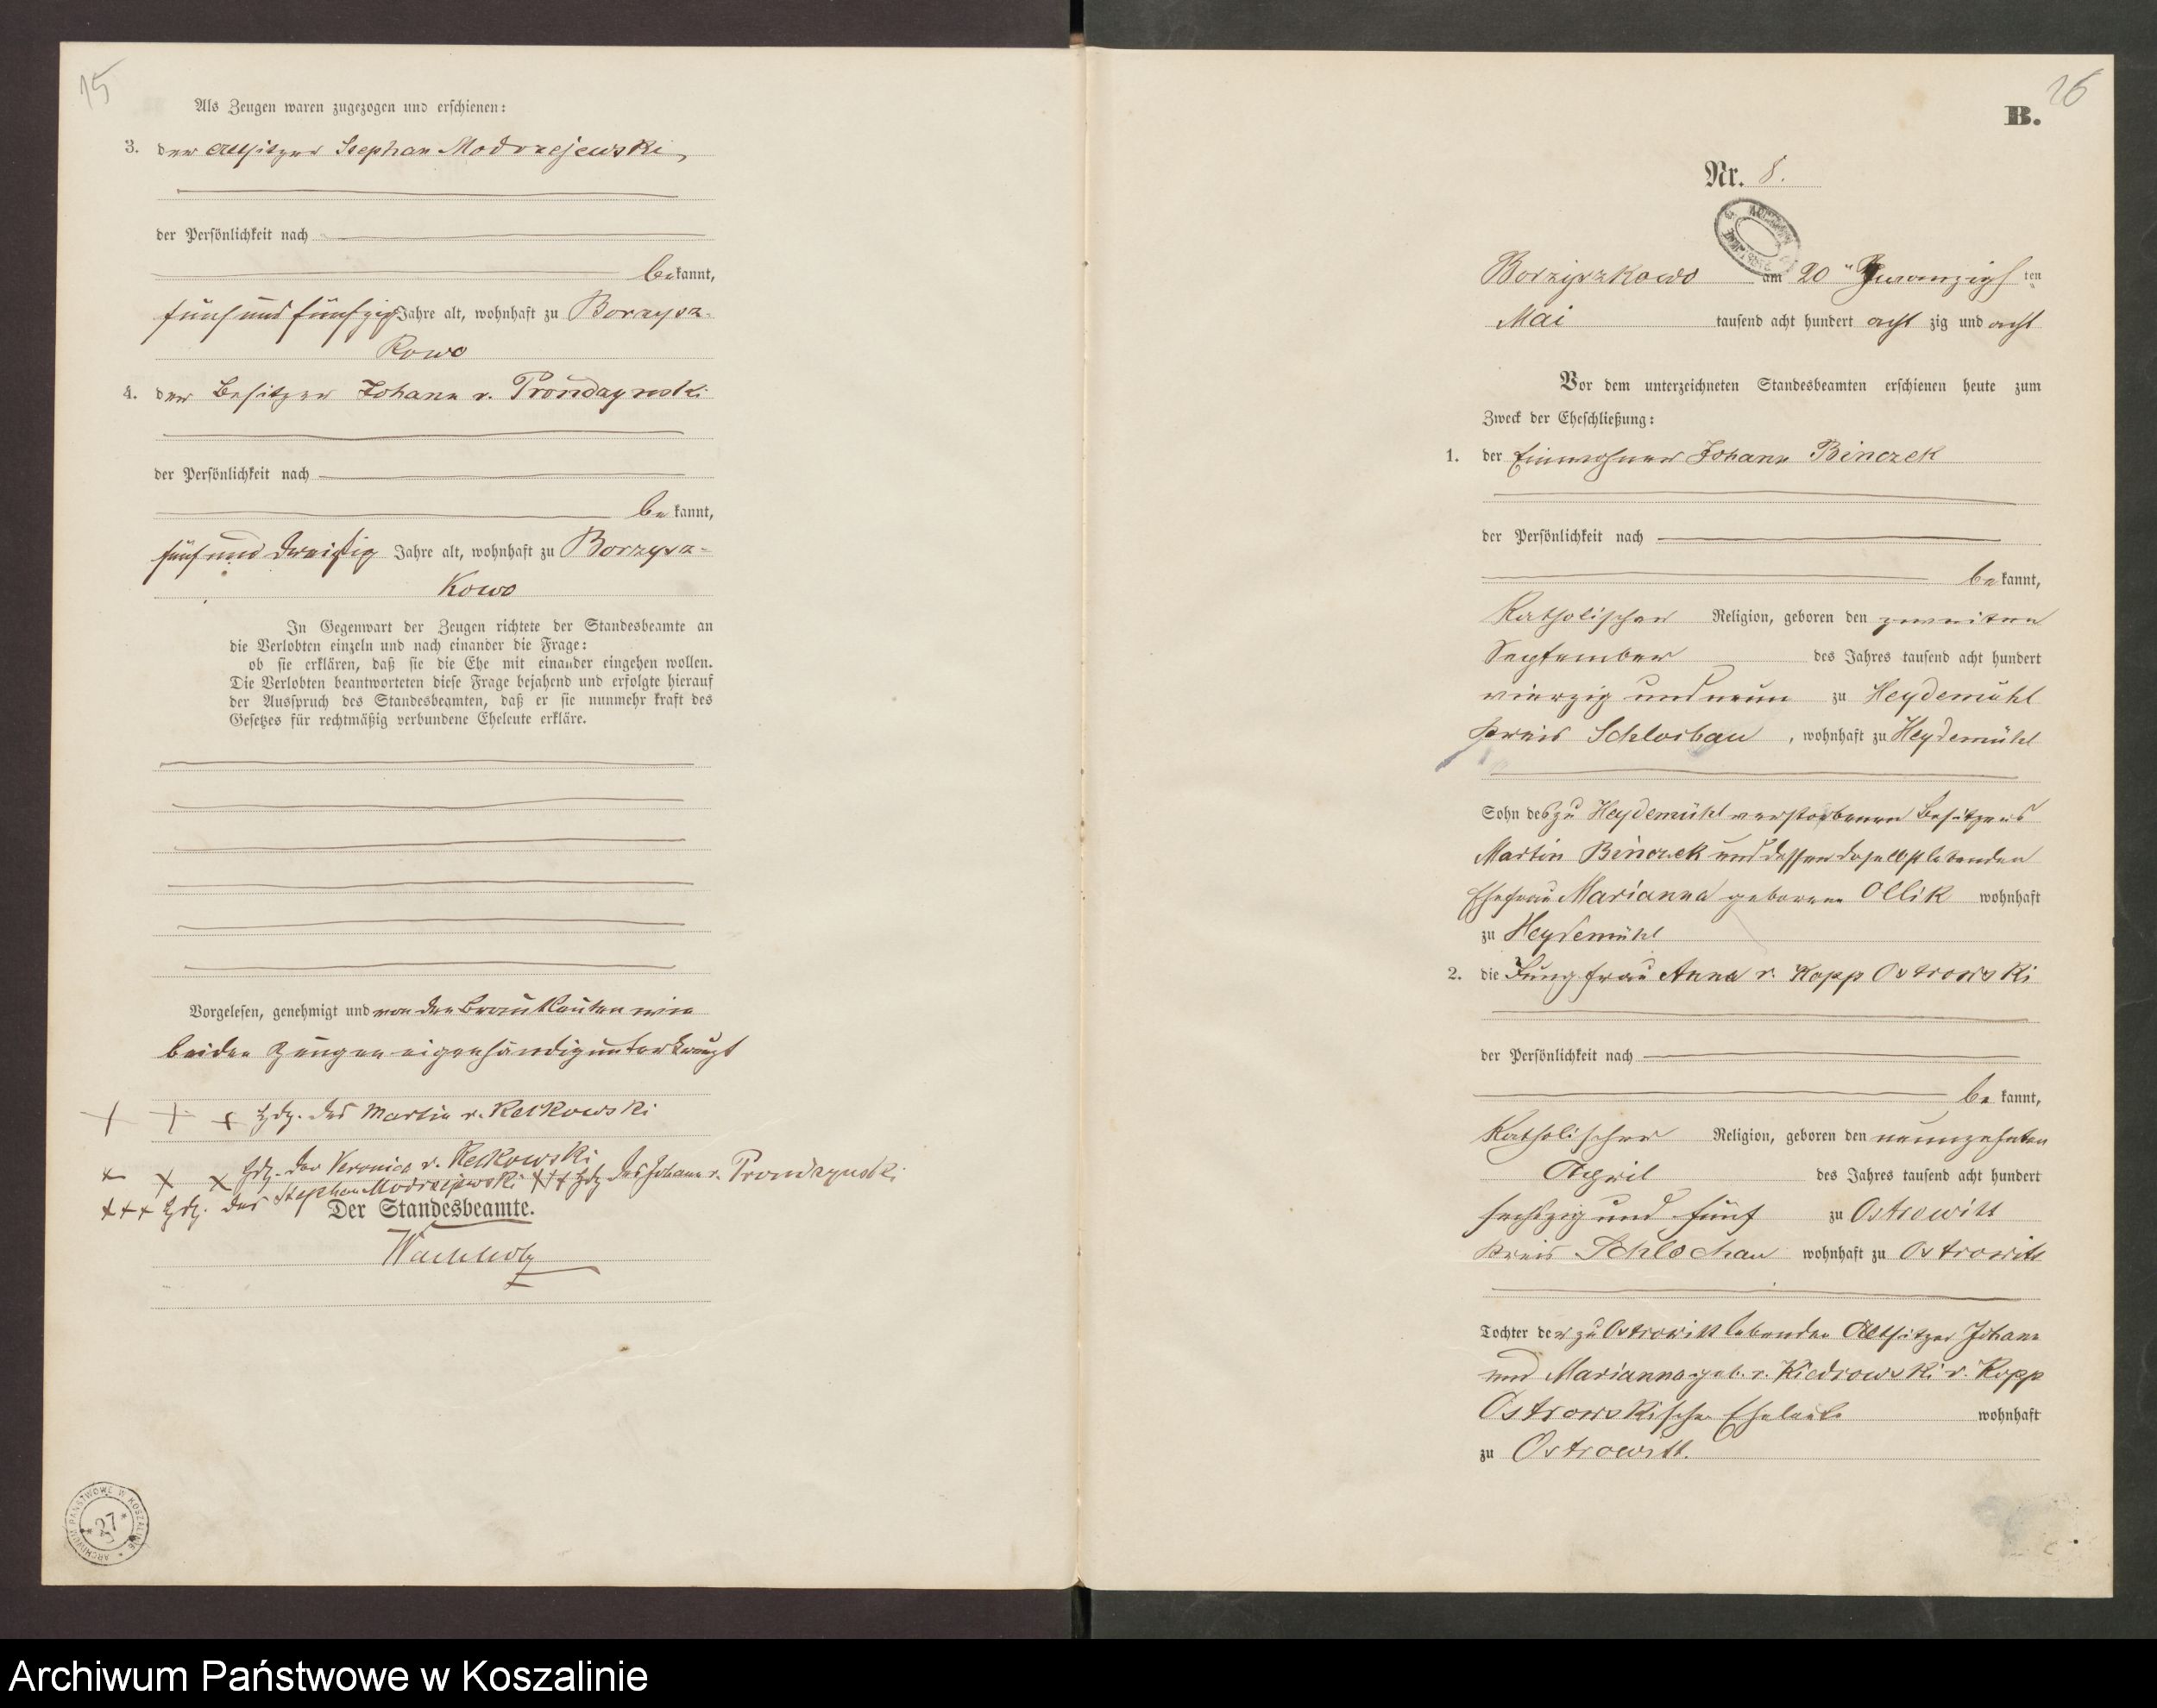 15
Als Zeugen waren zugezogen und erschienen:
3. der Altsitzer Stephan Modrzejewski,
der Persönlichkeit nach
bekannt,
fünf und fünfzig Jahre alt, wohnhaft zu Borzysz-
kowo
4. der Besitzer Johann v. Prondzynski
der Persönlichkeit nach
bekannt,
fünf und dreißig Jahre alt, wohnhaft zu Borzysz-
kowo
In Gegenwart der Zeugen richtete der Standesbeamte an
die Verlobten einzeln und nach einander die Frage:
ob sie erklären, daß sie die Ehe mit einander eingehen wollen.
Die Verlobten beantworteten diese Frage bejahend und erfolgte hierauf
der Ausspruch des Standesbeamten, daß er sie nunmehr kraft des
Gesetzes für rechtmäßig verbundene Eheleute erkläre.
Vorgelesen, genehmigt und von den Brautleuten wie
beiden Zeugen eigenhändig unterkreuzt
+ + + Hdz. des Martin v. Retkowski
x x x Hdz. der Veronica v. Retkowski
+++ Hdz. des Stephan Modrzejewski +++ Hdz. des Johann v. Prondzynski
Der Standesbeamte.
ARCHIWUM PAŃSTWOWE W KOSZALINIE
27
B. 26
Nr. 8.
Borzyszkowo am 20 " Zwanzigsten
Mai tausend acht hundert acht zig und acht
Vor dem unterzeichneten Standesbeamten erschienen heute zum
Zweck der Eheschließung:
1. der Einwohner Johann Binczek
der Persönlichkeit nach
bekannt,
Katholischer Religion, geboren den zweiten
September des Jahres tausend acht hundert
vierzig und neun zu Heydemühl
Kreis Schlochau, wohnhaft zu Heydemühl
Sohn des zu Heydemühl verstorbenen Besitzers
Martin Binczek und dessen daselbst lebenden
Ehefrau Marianna geborene Ollik wohnhaft
zu Heydemühl
2. die Jungfrau Anna v. Kopp Ostrowski
der Persönlichkeit nach
bekannt,
Katholischer Religion, geboren den neunzehnten
April des Jahres tausend acht hundert
sechszig und fünf zu Ostrowitt
Kreis Schlochau wohnhaft zu Ostrowitt
Tochter der zu Ostrowitt lebenden Altsitzer Johann
und Marianna geb. v. Kiedrowski v. Kopp
Ostrowskischen Eheleute wohnhaft
zu Ostrowitt.
Archiwum Państwowe w Koszalinie